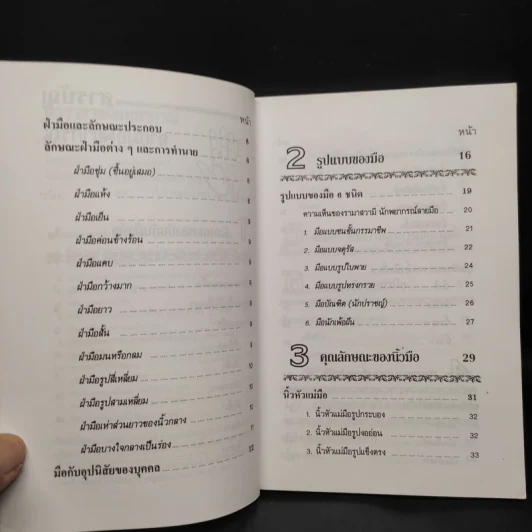 หน้า
ฝ่ามือและลักษณะประกอบ 6
ลักษณะฝ่ามือต่าง ๆ และการทำนาย
ฝ่ามือชุ่ม (ชื้นอยู่เสมอ)
ฝ่ามือแห้ง
ฝ่ามือเย็น
ฝ่ามือค่อนข้างร้อน
ฝ่ามือแคบ
ฝ่ามือกว้างมาก
ฝ่ามือยาว
ฝ่ามือสั้น
ฝ่ามือมนหรือกลม
ฝ่ามือรูปสี่เหลี่ยม
ฝ่ามือรูปสามเหลี่ยม
ฝ่ามือเท่าส่วนยาวของนิ้วกลาง
ฝ่ามือบางใจกลางเป็นร่อง
มือกับอุปนิสัยของบุคคล
หน้า
2 รูปแบบของมือ 16
รูปแบบของมือ 6 ชนิด 19
ความเห็นของรามาสวามี นักพยากรณ์ลายมือ 20
1. มือแบบชนชั้นกรรมาชีพ 21
2. มือแบบจตุรัส 22
3. มือแบบรูปใบพาย 24
4. มือแบบรูปทรงกรวย 25
5. มือบัณฑิต (นักปราชญ์) 26
6. มือนักเพ้อฝัน 27
3 คุณลักษณะของนิ้วมือ 29
นิ้วหัวแม่มือ 31
1. นิ้วหัวแม่มือรูปกระบอง 32
2. นิ้วหัวแม่มือรูปงอย่อน 32
3. นิ้วหัวแม่มือรูปแข็งตรง 33